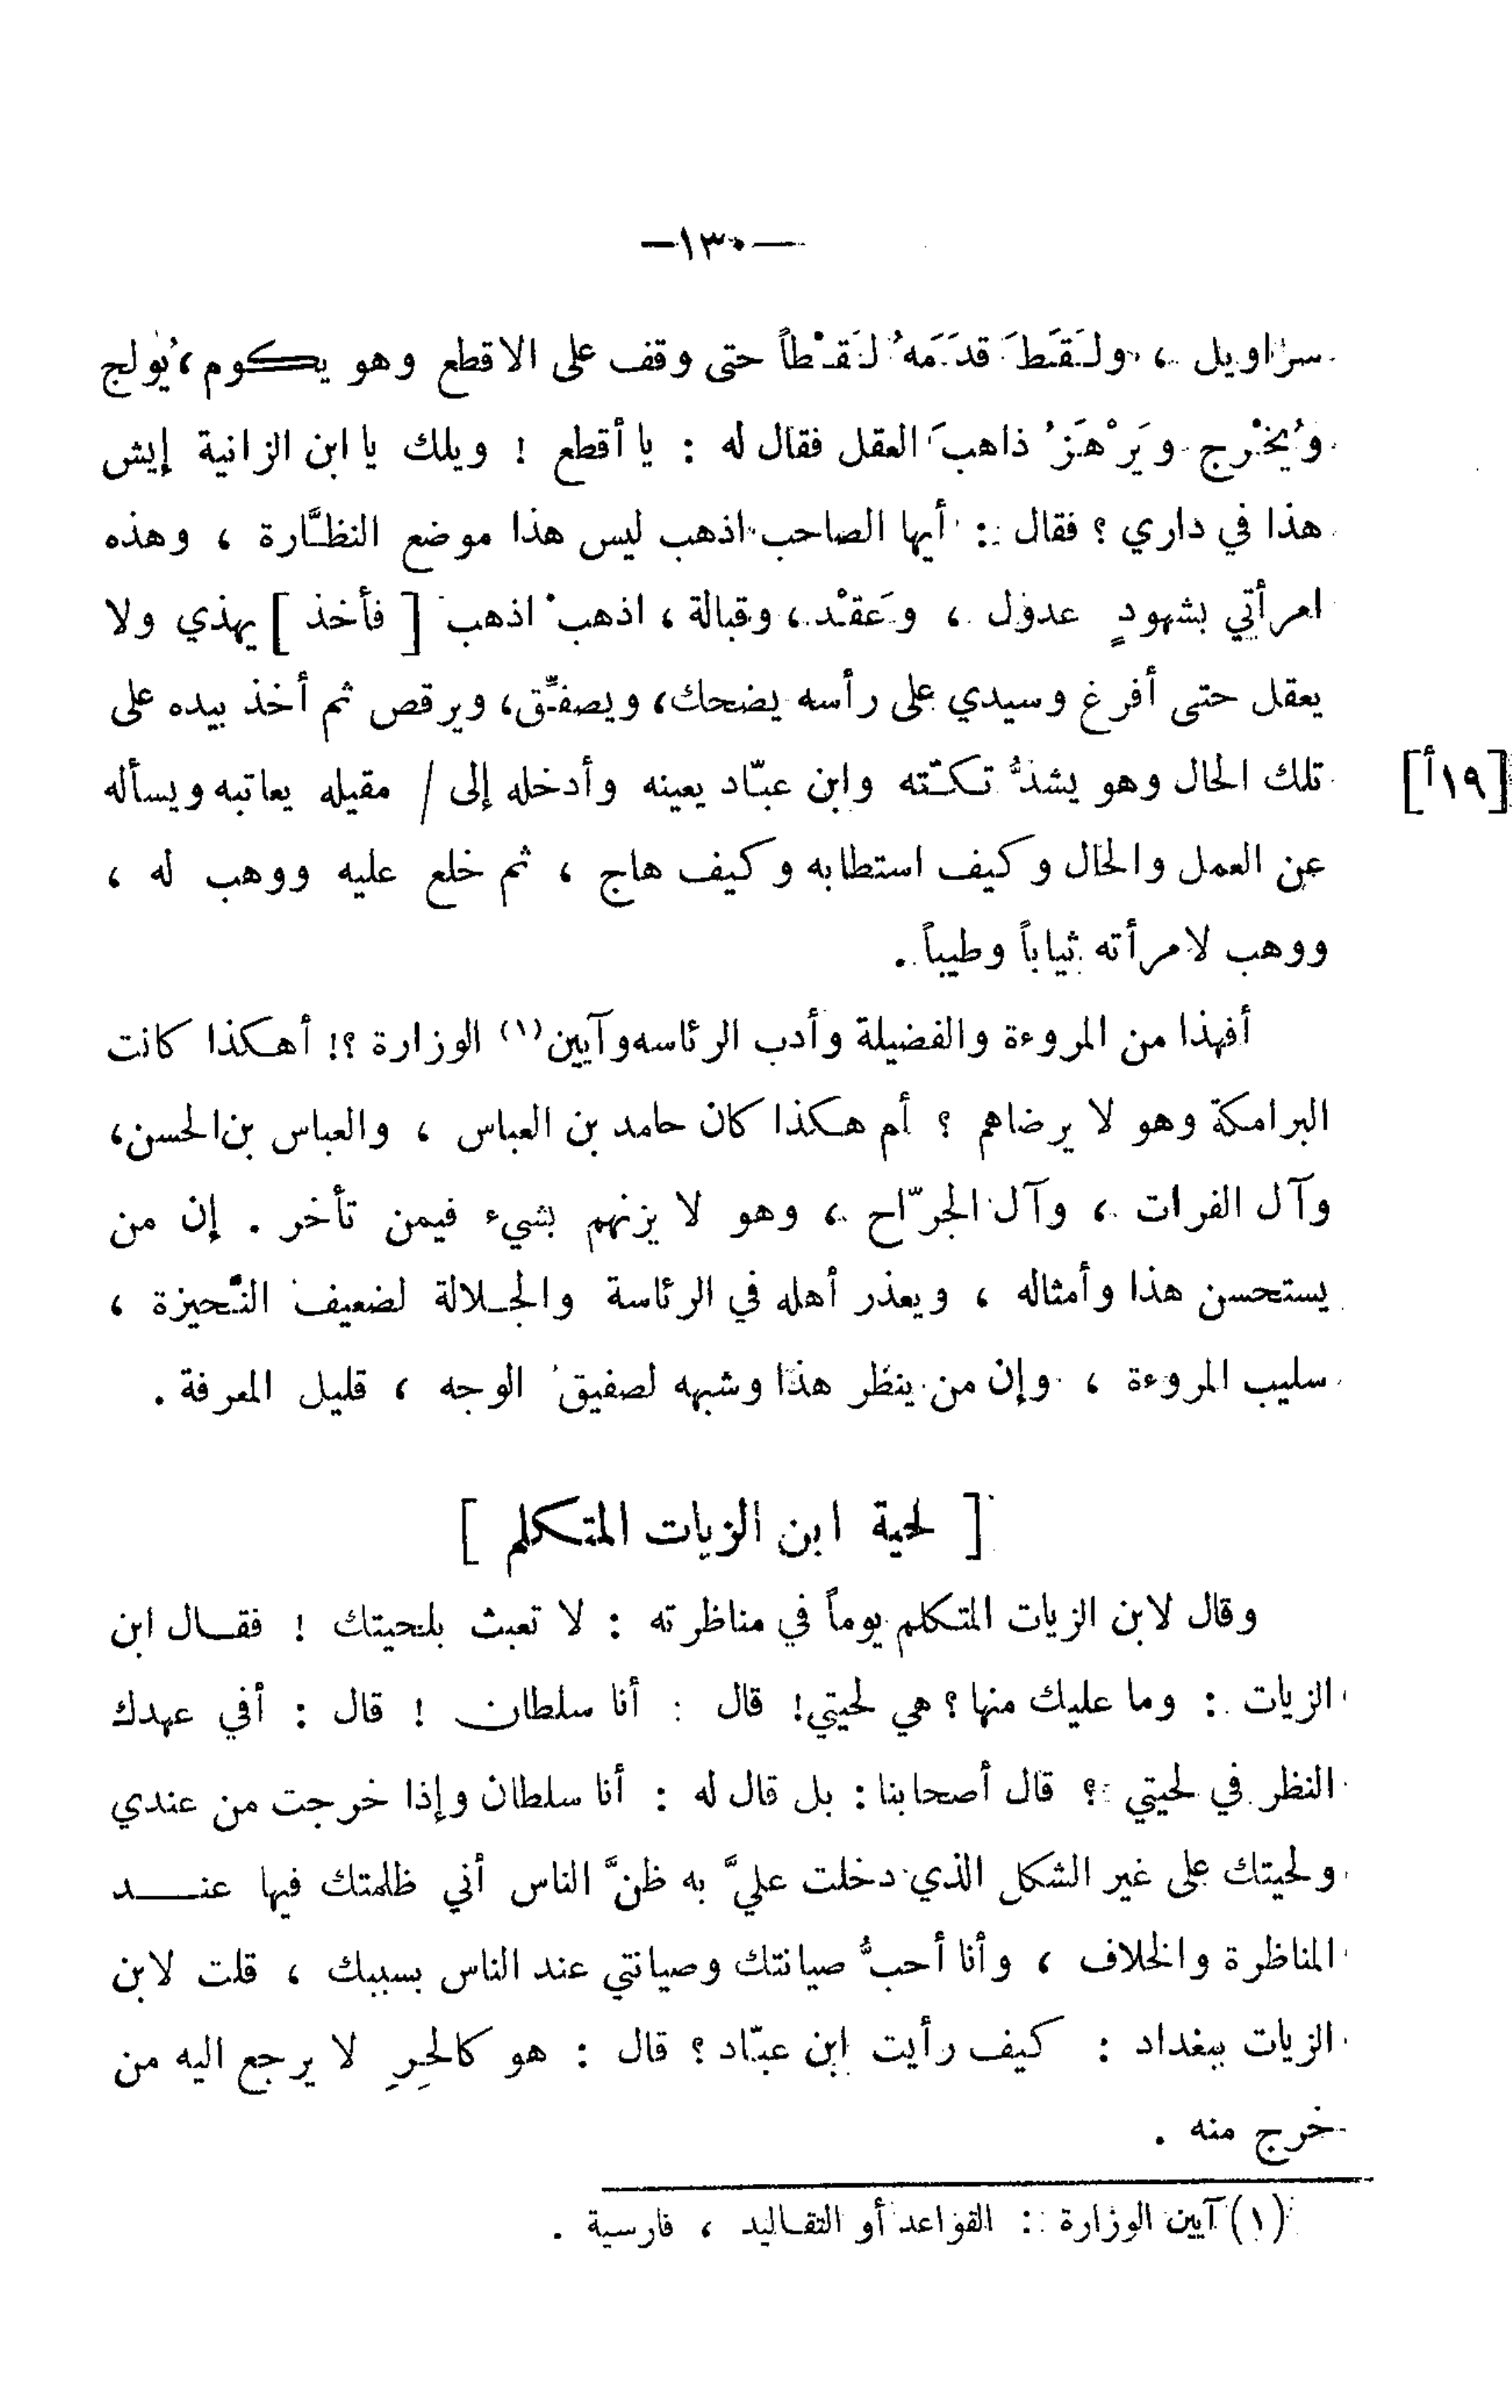 —١٣٠—
سراويل ، ولَقَطَ قدَمَهُ لَقْطاً حتى وقف على الاقطع وهو يكوم ، يُولج
ويُخْرج ويَرْهَزُ ذاهبَ العقل فقال له : يا أقطع ! ويلك يا ابن الزانية إيش
هذا في داري ؟ فقال : أيها الصاحب اذهب ليس هذا موضع النظَّارة ، وهذه
امرأتي بشهودٍ عدول ، وَعقْد ، وقبالة ، اذهبْ اذهب [ فأخذ ] يهذي ولا
يعقل حتى أفرغ وسيدي على رأسه يضحك ، ويصفِّق ، ويرقص ثم أخذ بيده على
تلك الحال وهو يشدُّ تكّته وابن عبّاد يعينه وأدخله إلى / مقيله يعاتبه ويسأله
[١٩أ]
عن العمل والحال وكيف استطابه وكيف هاج ، ثم خلع عليه ووهب له ،
ووهب لامرأته ثياباً وطيباً .
أفهذا من المروءة والفضيلة وأدب الرئاسه وآيين (١) الوزارة ؟! أهكذا كانت
البرامكة وهو لا يرضاهم ؟ أم هكذا كان حامد بن العباس ، والعباس بن الحسن ،
وآل الفرات ، وآل الجرّاح ، وهو لا يزنهم بشيء فيمن تأخر . إن من
يستحسن هذا وأمثاله ، ويعذر أهله في الرئاسة والجلالة لضعيف النَّحيزة ،
سليب المروءة ، وإن من ينظر هذا وشبهه لصفيق الوجه ، قليل المعرفة .
[ لحية ابن الزيات المتكلم ]
وقال لابن الزيات المتكلم يوماً في مناظرته : لا تعبث بلحيتك ! فقال ابن
الزيات : وما عليك منها ؟ هي لحيتي ! قال : أنا سلطان ! قال : أفي عهدك
النظر في لحيتي ؟ قال أصحابنا : بل قال له : أنا سلطان وإذا خرجت من عندي
ولحيتك على غير الشكل الذي دخلت عليَّ به ظنَّ الناس أني ظلمتك فيها عند
المناظرة والخلاف ، وأنا أحبُّ صيانتك وصيانتي عند الناس بسببك ، قلت لابن
الزيات ببغداد : كيف رأيت ابن عبّاد ؟ قال : هو كالحِرِ لا يرجع اليه من
خرج منه .
(١) آيين الوزارة : القواعد أو التقاليد ، فارسية .